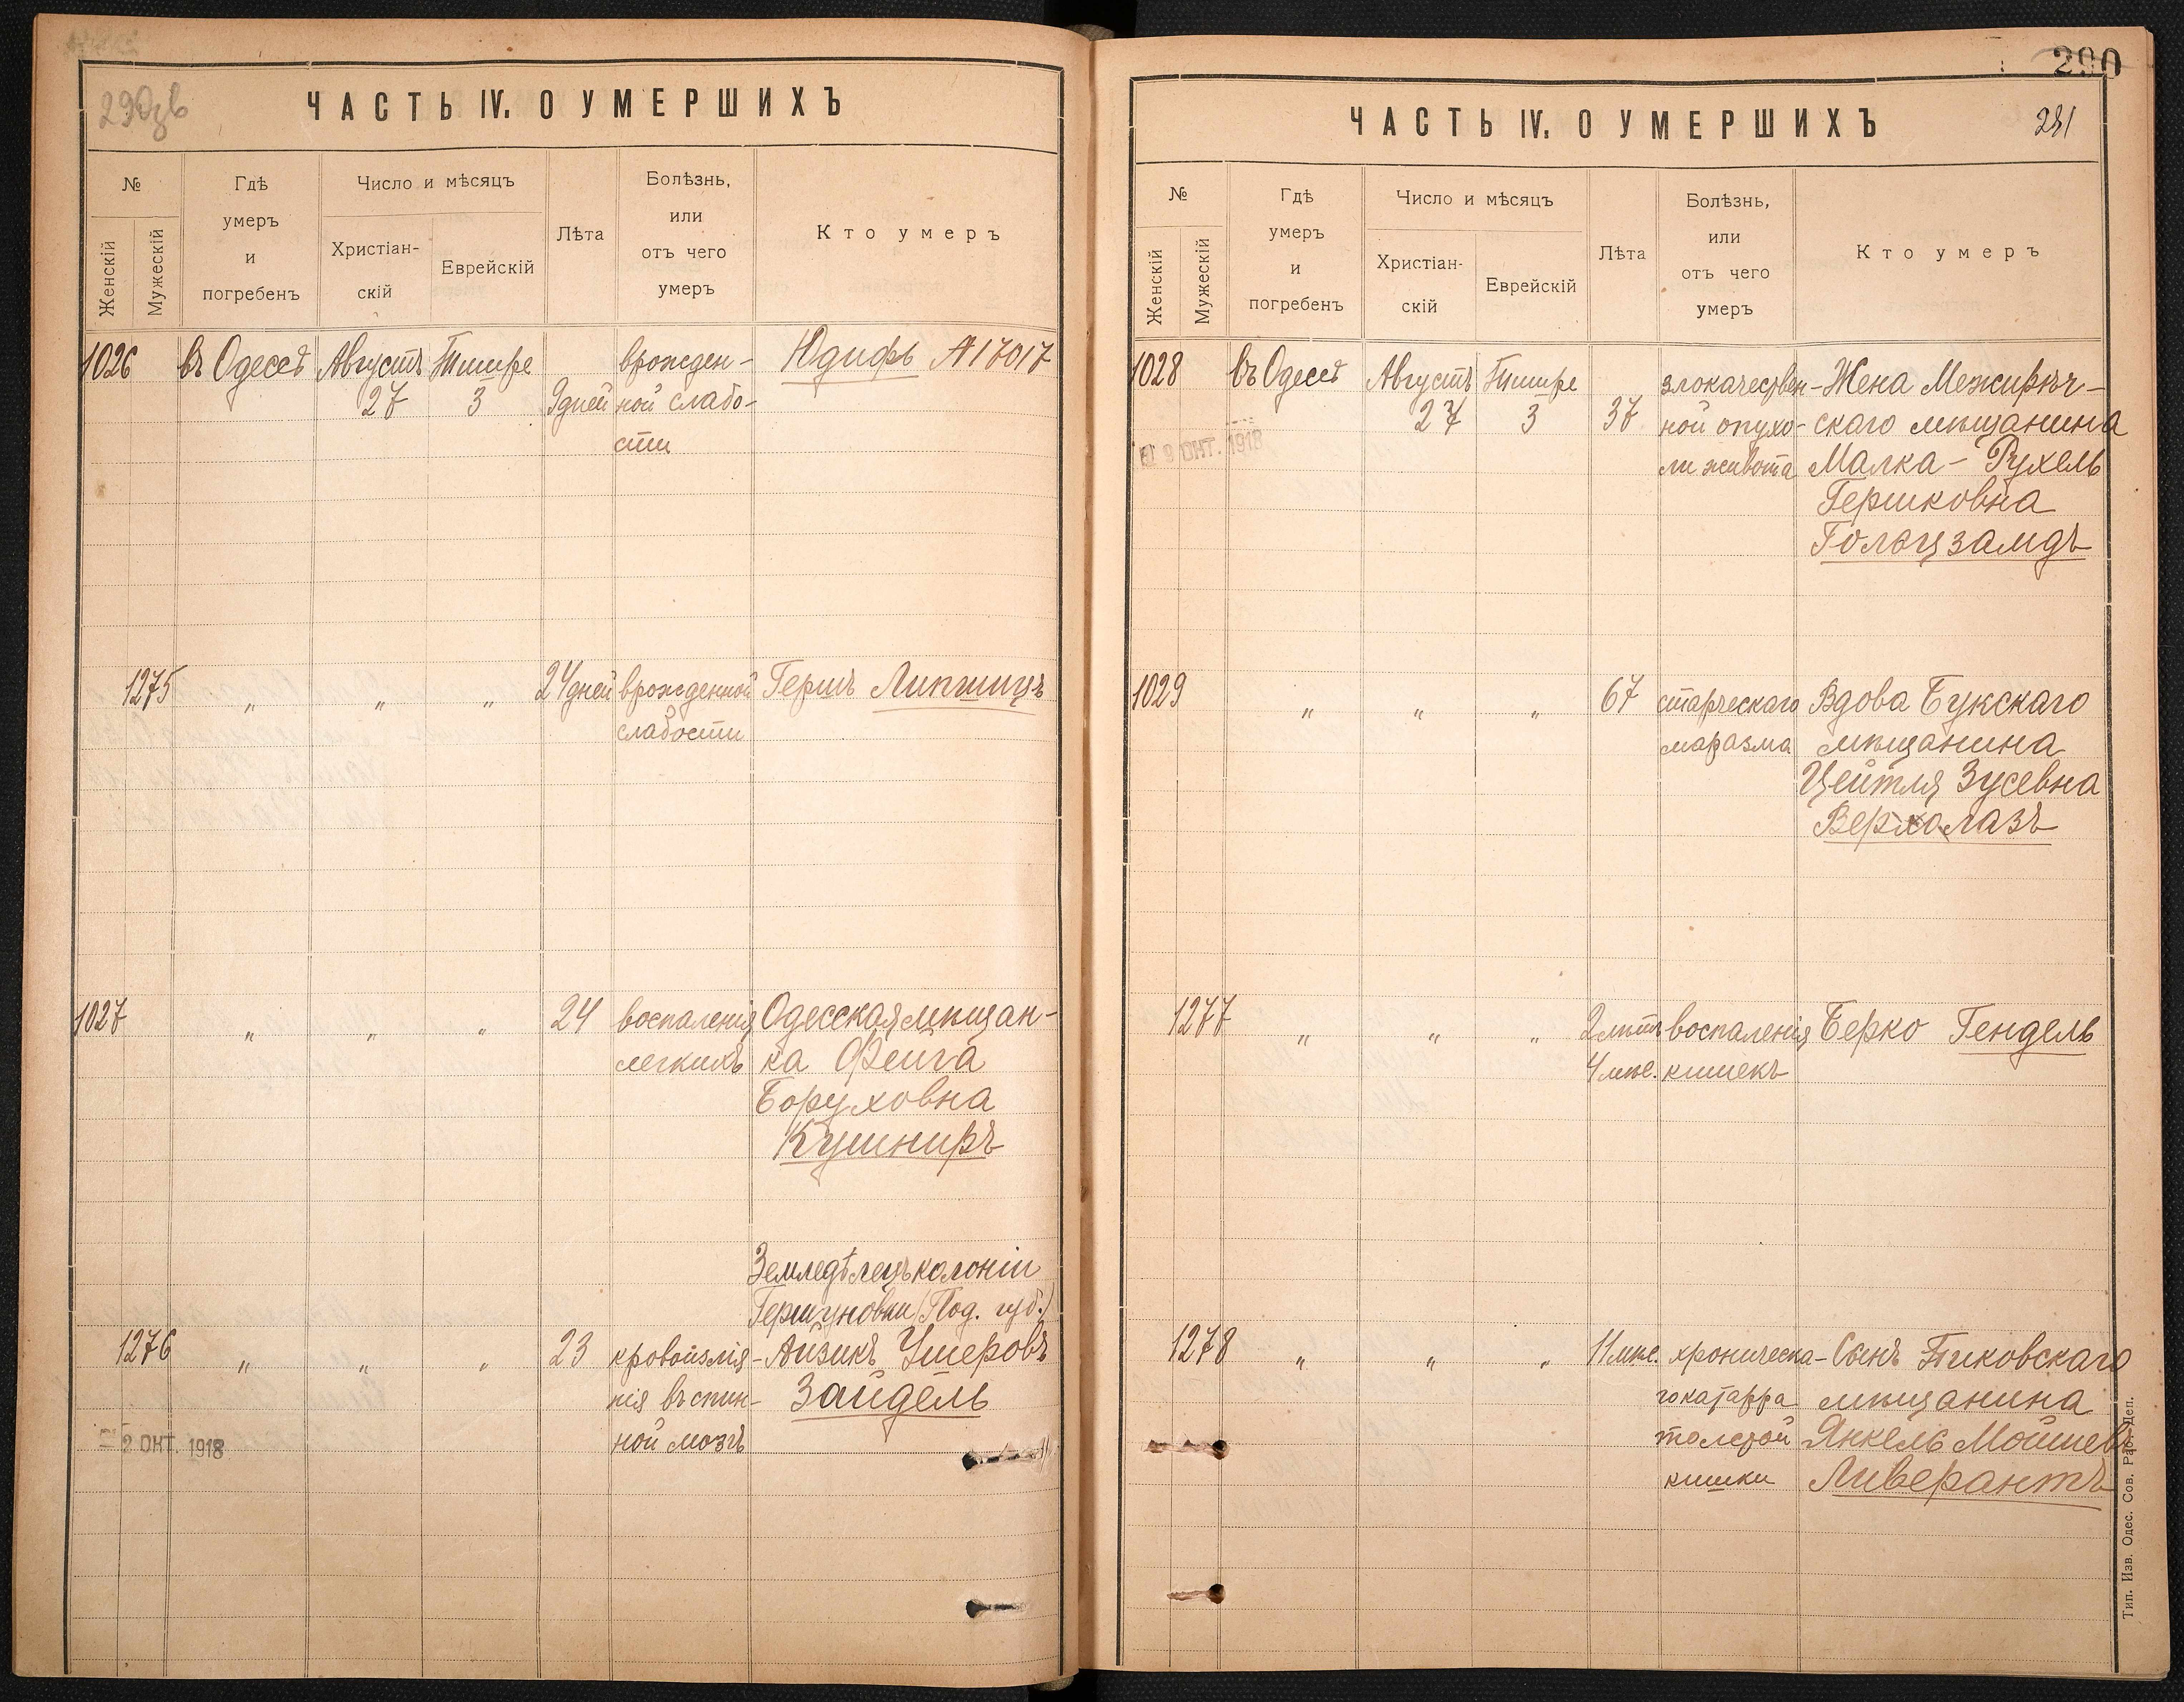 290зв
ЧАСТЬ IV. О УМЕРШИХЪ
№
Женскій
Мужескій
Гдѣ
умеръ
и
погребенъ
Число и мѣсяцъ
Христіан-
скій
Еврейскій
Лѣта
Болѣзнь,
или
отъ чего
умеръ
Кто умеръ
1026 въ Одессѣ Августъ Тишре врожден- Юдифь №17017
27 3 9 дней ной слабо-
сти
1275 " " " 24 дней врожденной Гершъ Липшицъ
слабости
1027 " " " 24 воспаленія Одесская мѣщан-
легкихъ ка Фейга
Боруховна
Кушниръ
Земледѣлецъ колоніи
Гершуновки (Под. губ.)
1276 " " " 23 кровоизлія- Айзикъ Ушеровъ
нія въ спин- Зайдель
ной мозгъ
2 ОКТ. 1918
290
ЧАСТЬ IV. О УМЕРШИХЪ
291
№
Женскій
Мужескій
Гдѣ
умеръ
и
погребенъ
Число и мѣсяцъ
Христіан-
скій
Еврейскій
Лѣта
Болѣзнь,
или
отъ чего
умеръ
Кто умеръ
1028 въ Одессѣ Августъ Тишре злокачествен- Жена Межирѣч-
27 3 37 ной опухо- скаго мѣщанина
ли живота Малка-Рухель
Гершковна
Гольцзамдъ
9 ОКТ. 1918
1029 " " " 67 старческаго Вдова Букскаго
маразма мѣщанина
Цейтля Зусевна
Верхолазъ
1277 " " " 2 лѣтъ воспаленія Берко Гендель
4 мѣс. кишекъ
1278 " " " 11 мѣс. хроническа- Сынъ Пиковскаго
го катарра мѣщанина
толстой Янкель Мошиевъ
кишки Ливерантъ
Тип. Изв. Одес. Сов. Раб. Деп.